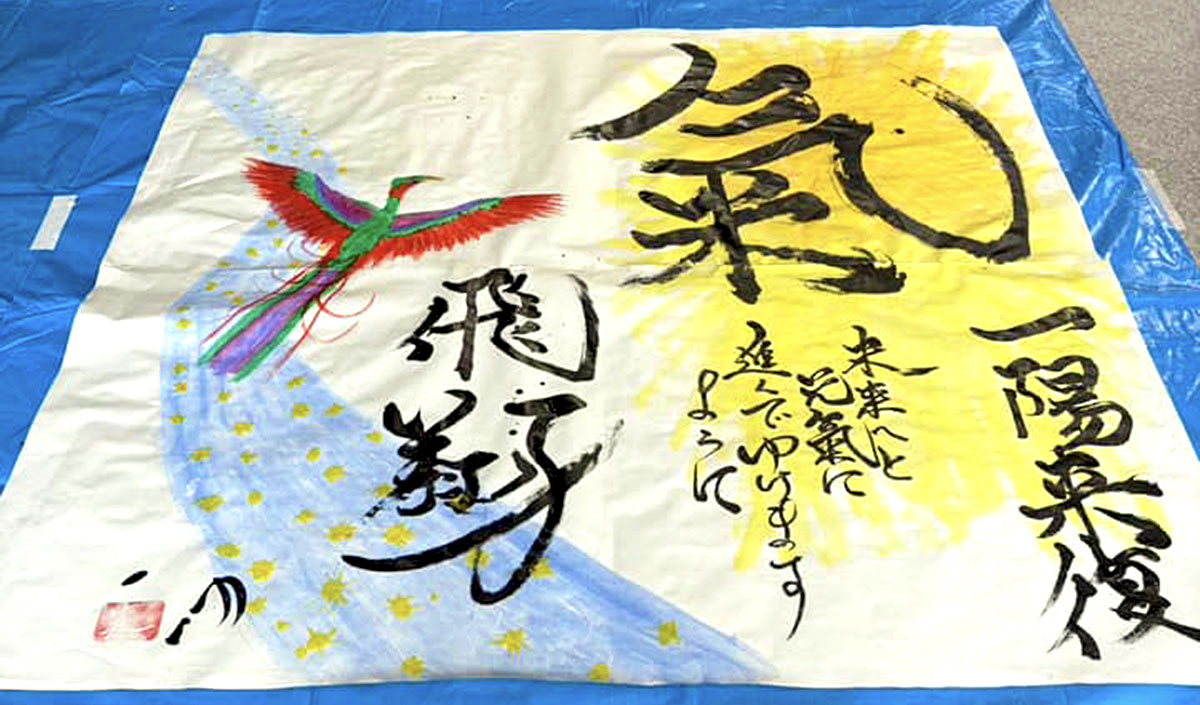 氣
一陽来復
未来へと
元氣に
進んでゆけます
ように
飛翔